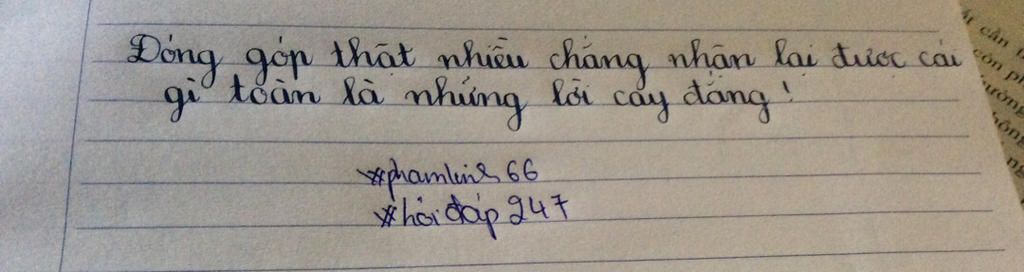 Đóng góp thật nhiều chẳng nhận lại được cái
gì toàn là những lời cay đắng!
#phamlinh66
#hỏi đáp 247